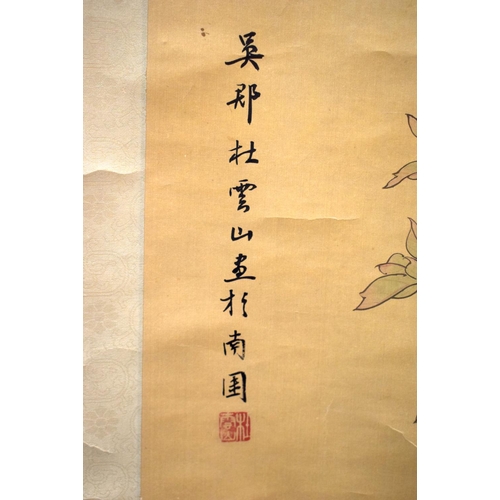 吳郡杜雲山畫於南園